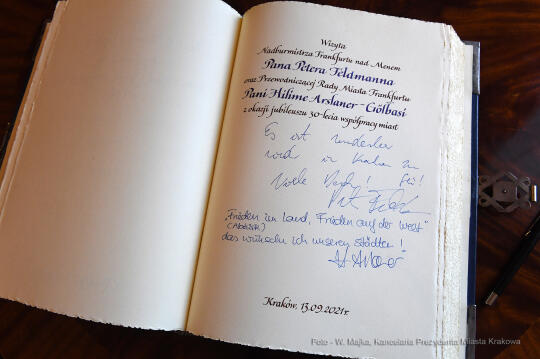 Wizyta
Nadburmistrza Frankfurtu nad Menem
Pana Petera Feldmanna
oraz Przewodniczącej Rady Miasta Frankfurtu
Pani Hilime Arslaner-Gölbasi
z okazji jubileuszu 30-lecia współpracy miast
Es ist wunderbar
in
Viele
"Frieden im Land, Frieden auf der Welt"
das wünsche ich unseren Städten!
Kraków, 13.09.2021r.
Foto - W. Majka, Kancelaria Prezydenta Miasta Krakowa